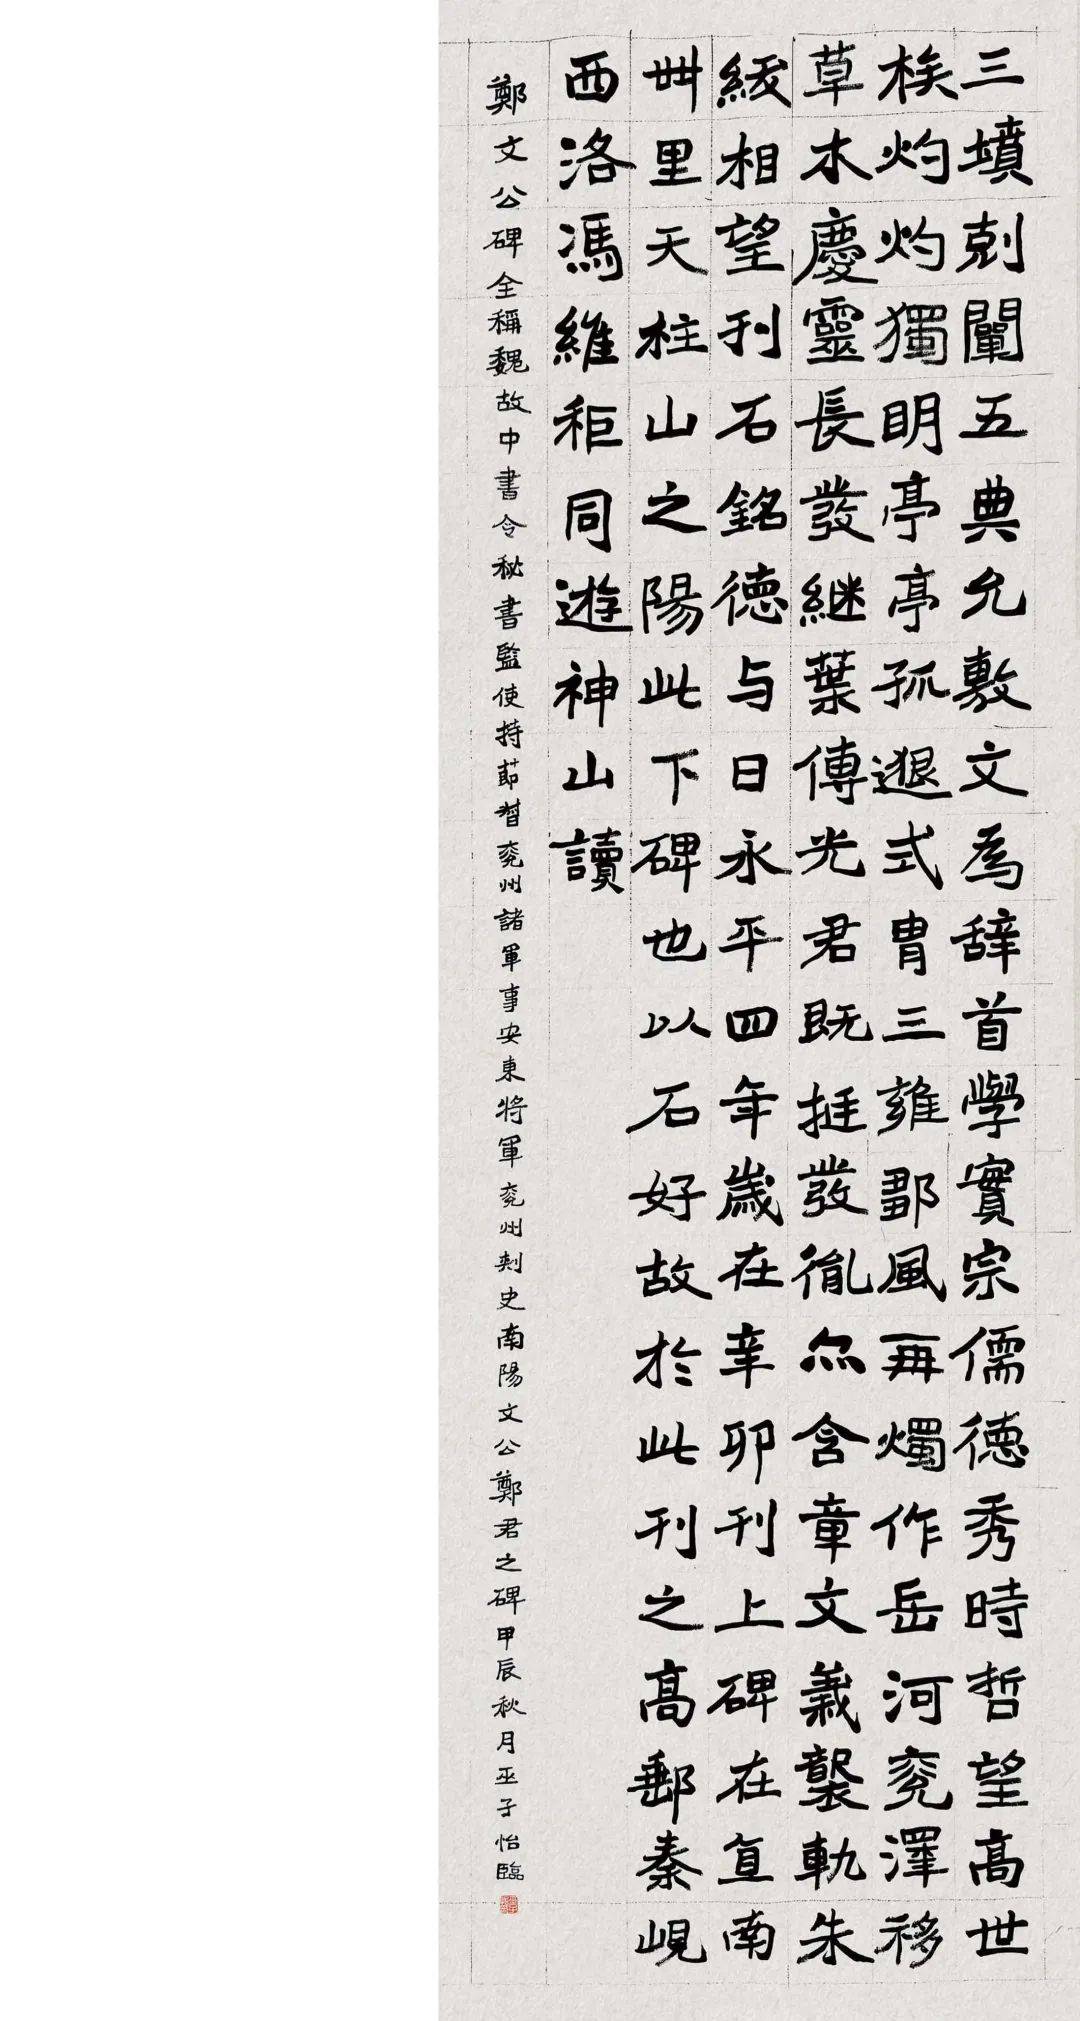 三墳剋闡五典允敷文為辞首學實宗儒德秀時哲望高世
族灼灼獨明亭亭孤邈式胄三雍鄒風再燭作岳河兖澤移
草木慶靈長發継葉傳光君既挺發胤亦含章文義襲軌朱
紱相望刊石銘德与日永平四年歲在辛卯刊上碑在直南
卌里天柱山之陽此下碑也以石好故於此刊之高郵秦峴
西洛馮維秬同遊神山讀
鄭文公碑全稱魏故中書令秘書監使持節督兖州諸軍事安東將軍兖州刺史南陽文公鄭君之碑甲辰秋月巫子怡臨